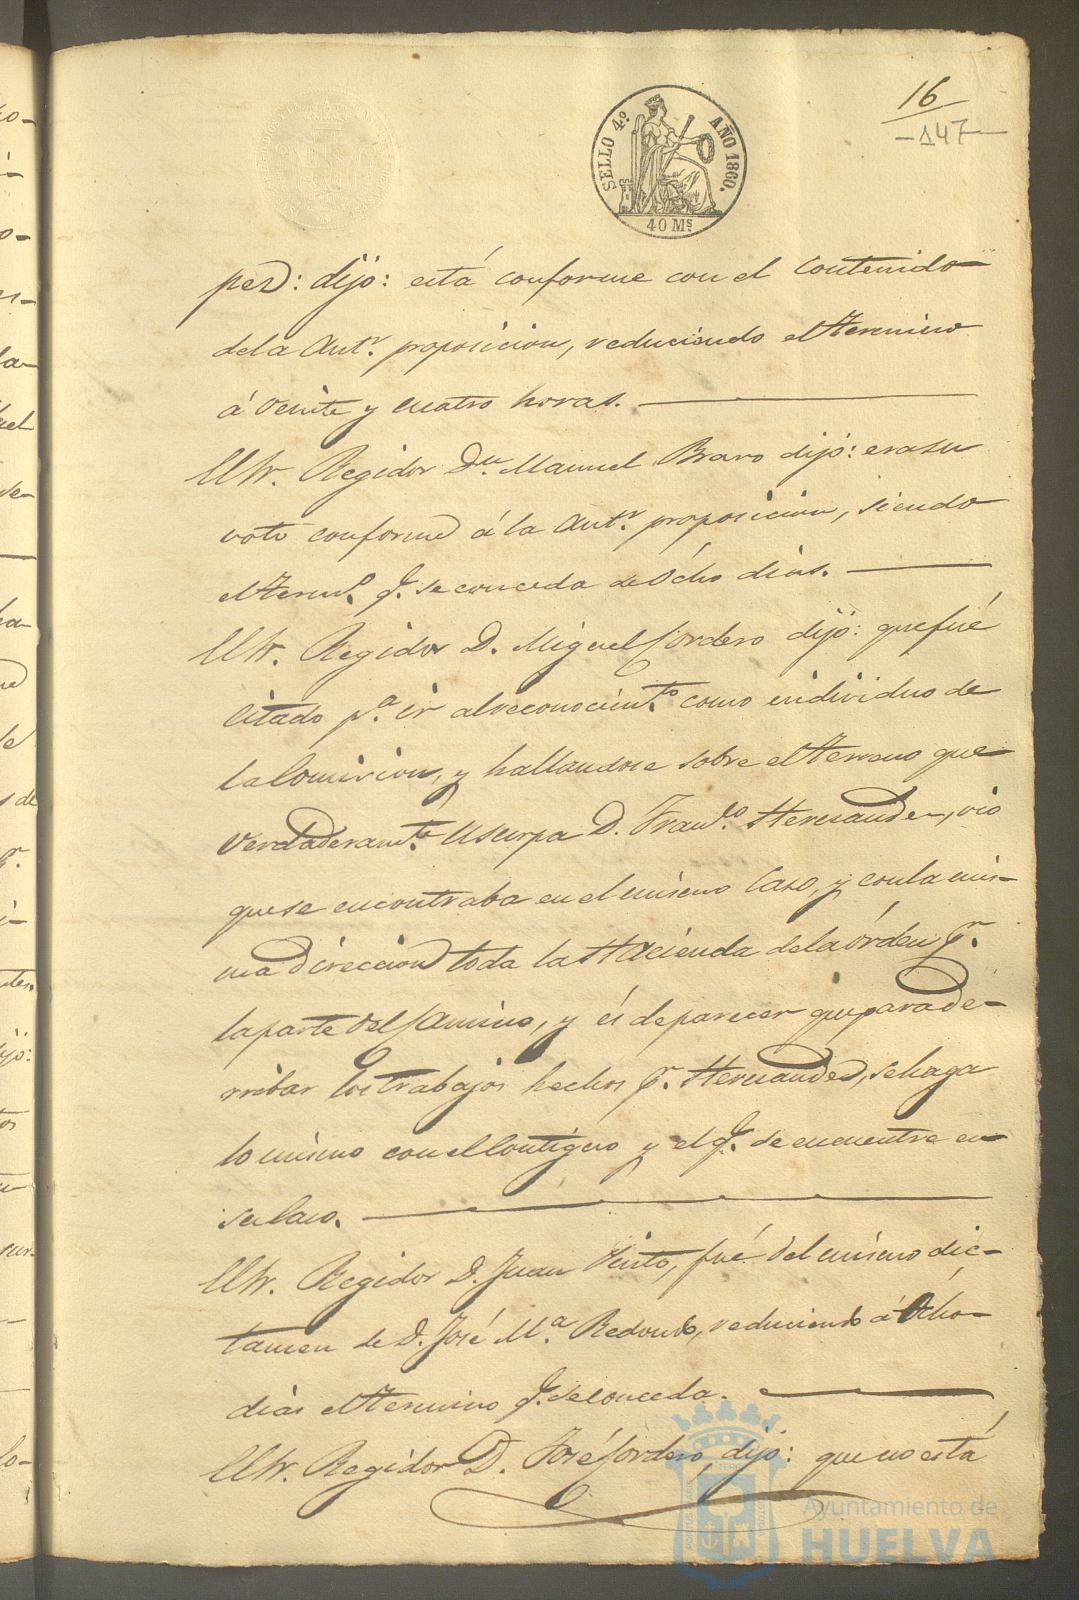 16
147
SELLO 4.º AÑO 1860.
40 Ms.
pez: dijo: está conforme con el contenido
dela Antr. proposicion, reduciendo el termino
á veinte y cuatro horas.
El Sr. Regidor Dn. Manuel Bravo dijo: era su
voto conforme á la Antr. proposicion, siendo
el termo. q. se conceda de ócho dias.
El Sr. Regidor D. Miguel Cordero dijo: que fué
Citado pa. ir al reconocimto. como individuo de
la Comision, y hallandose sobre el terreno que
verdaderamte. Usurpa D. Franco. Hernandez, vio
que se encontraba en el mismo Caso, y con la mis-
ma direccion toda la Hacienda de la órden pr.
la parte del Camino, y és de parecer que para de-
rribar los trabajos hechos pr. Hernandez, se haga
lo mismo con el Contiguo y el q. se encuentre en
su Caso.
El Sr. Regidor D. Juan Pinto, fué del mismo dic-
tamen de D. José Ma. Redondo, reduciendo á ócho
dias el termino q. se conceda.
El Sr. Regidor D. José Cordero, dijo: que no está
Ayuntamiento de
HUELVA